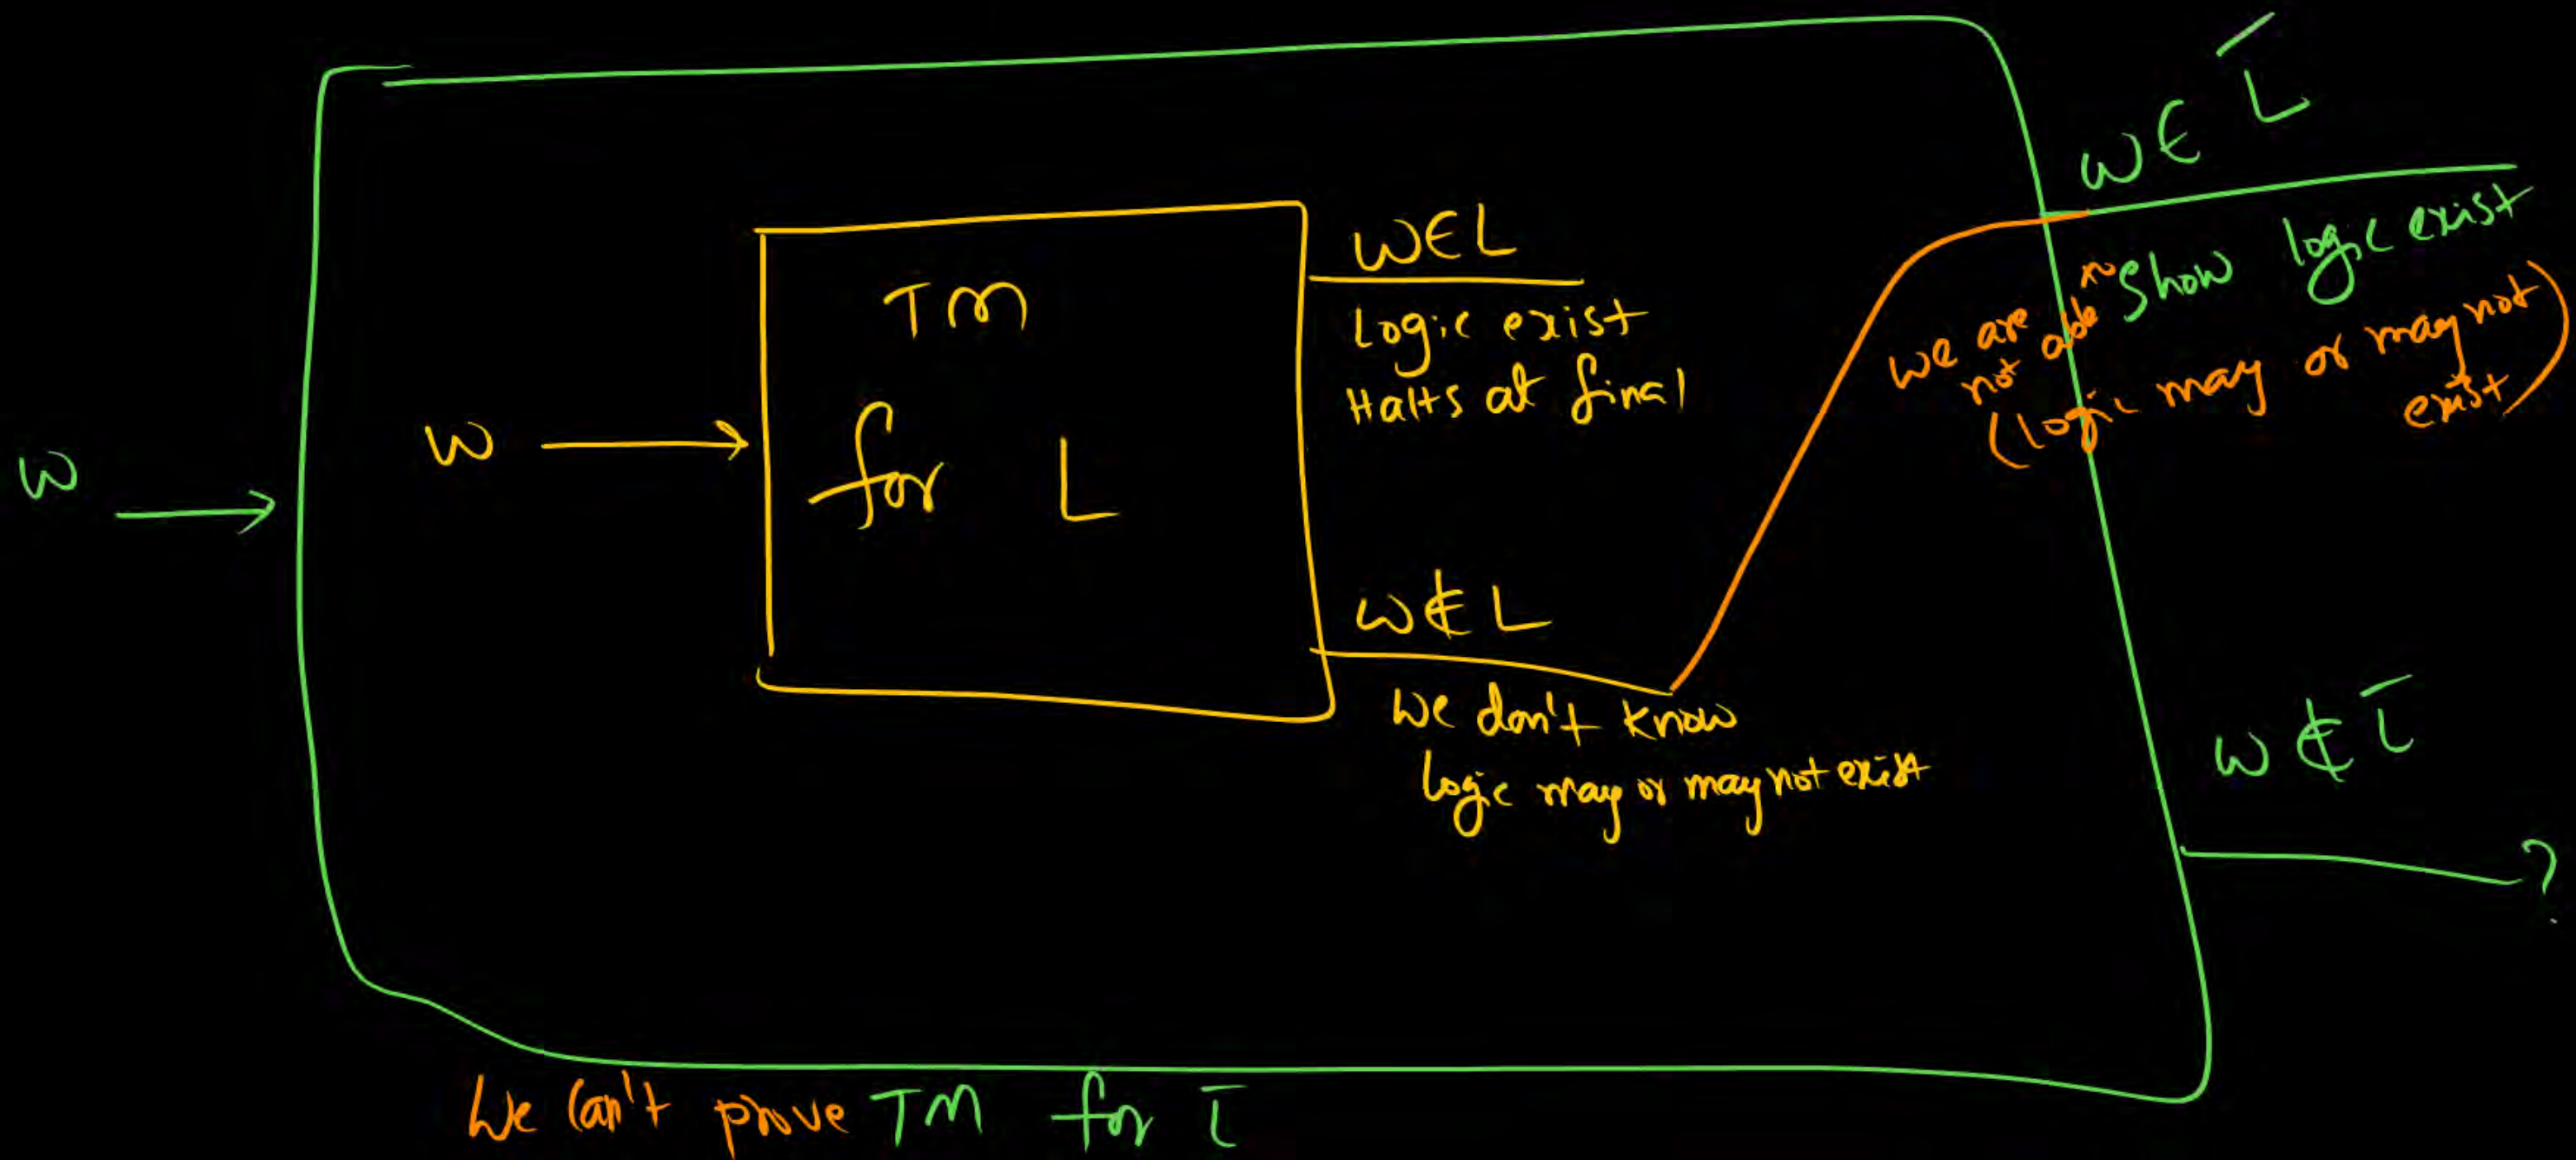 w
w
TM
for L
w∈L
Logic exist
Halts at final
w∉L
We don't know
Logic may or may not exist
w∈L̅
we are not able to show logic exist
(logic may or may not exist)
w∉L̅
?
We can't prove TM for L̅